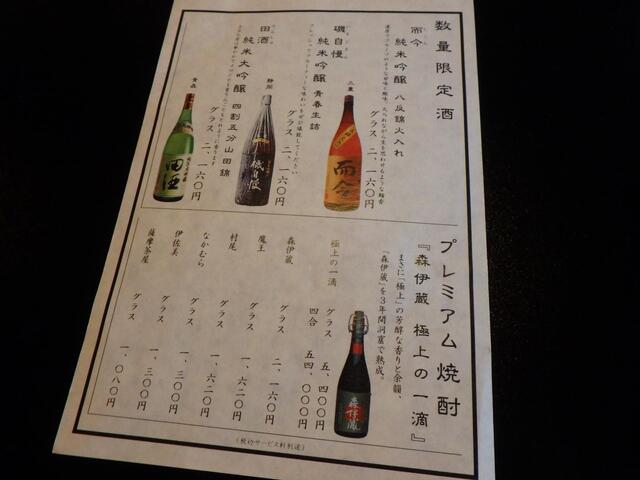 数量限定酒
而今
純米吟醸 八反錦火入れ
グラス 二、一六〇円
三重
磯自慢
純米吟醸 青春生詰
グラス 二、一六〇円
静岡
田酒
純米大吟醸 四割五分 山田錦
グラス 二、一六〇円
青森
而今
磯自慢
田酒
プレミアム焼酎
『森伊蔵 極上の一滴』
まさに「極上」の芳醇な香りと余韻、
「森伊蔵」を3年間洞窟で熟成。
森伊蔵
極上の一滴 グラス 五、四〇〇円
四合 五四、〇〇〇円
森伊蔵 グラス 二、一六〇円
魔王 グラス 一、六二〇円
村尾 グラス 一、六二〇円
なかむら グラス 一、六二〇円
伊佐美 グラス 一、三〇〇円
薩摩茶屋 グラス 一、〇八〇円
(税・サービス料別途)